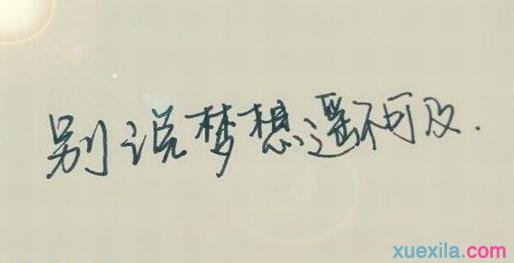 别说梦想遥不可及.
xuexila.com